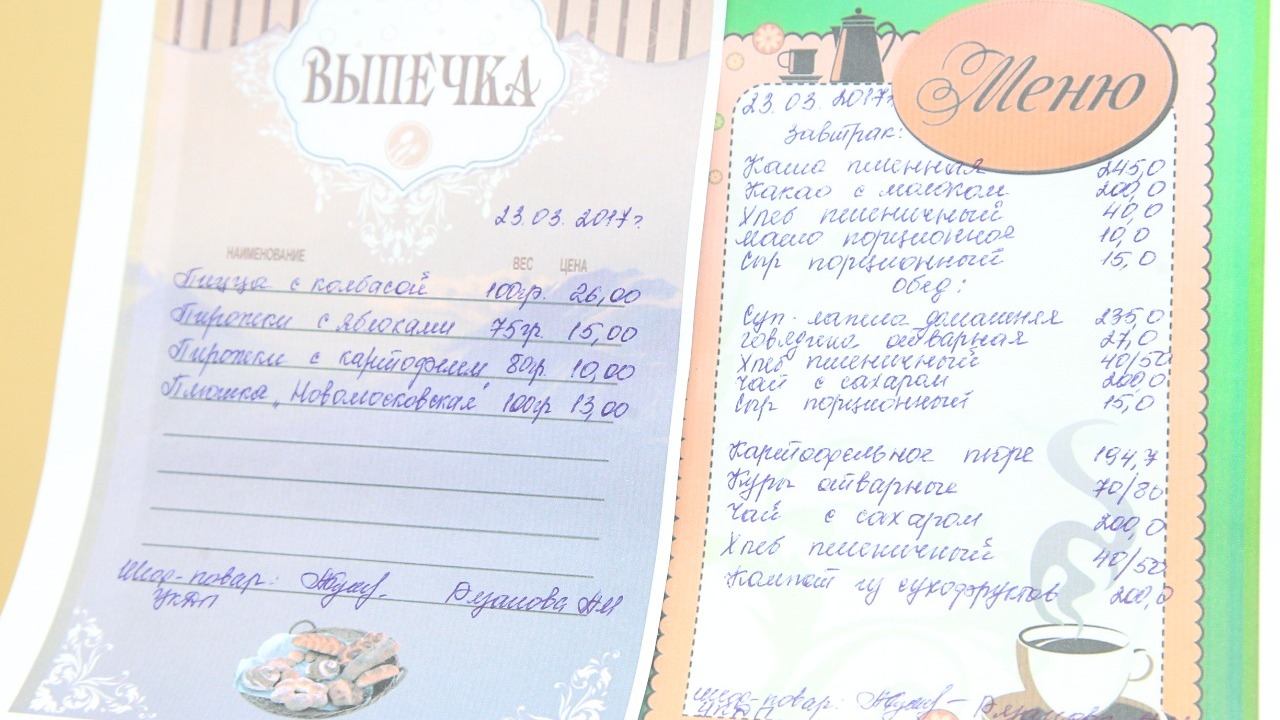 ВЫПЕЧКА
23.03.2017г.
НАИМЕНОВАНИЕ ВЕС ЦЕНА
Пицца с колбасой 100гр. 26,00
Пирожки с яблоками 75гр 15,00
Пирожки с картофелем 80гр. 10,00
Плюшка „Новомосковская" 100гр 13,00
Шеф-повар:
Меню
23.03.2017г
Завтрак:
Каша пшенная 245,0
Какао с молоком 200,0
Хлеб пшеничный 40,0
Масло порционное 10,0
Сыр порционный 15,0
Обед:
Суп-лапша домашняя 235,0
Говядина отварная 27,0
Хлеб пшеничный 40/50
Чай с сахаром 200,0
Сыр порционный 15,0
Картофельное пюре 194,7
Куры отварные 70/80
Чай с сахаром 200,0
Хлеб пшеничный 40/50
Компот из сухофруктов 200,0
Шеф-повар: